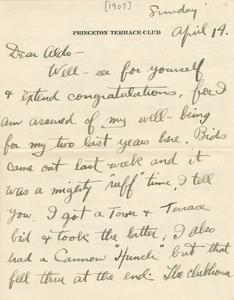 [1907]
Sunday
April 14.
PRINCETON TERRACE CLUB
Dear Aldo-
Well - see for yourself
& extend congratulations, for I
am assured of my well-being
for my two last years here. Bids
came out last week and it
was a mighty "ruff" time, I tell
you. I got a Tower & Terrace
bid & took the latter; I also
had a Cannon "Hunch" but that
fell thru at the end. The clubhouse